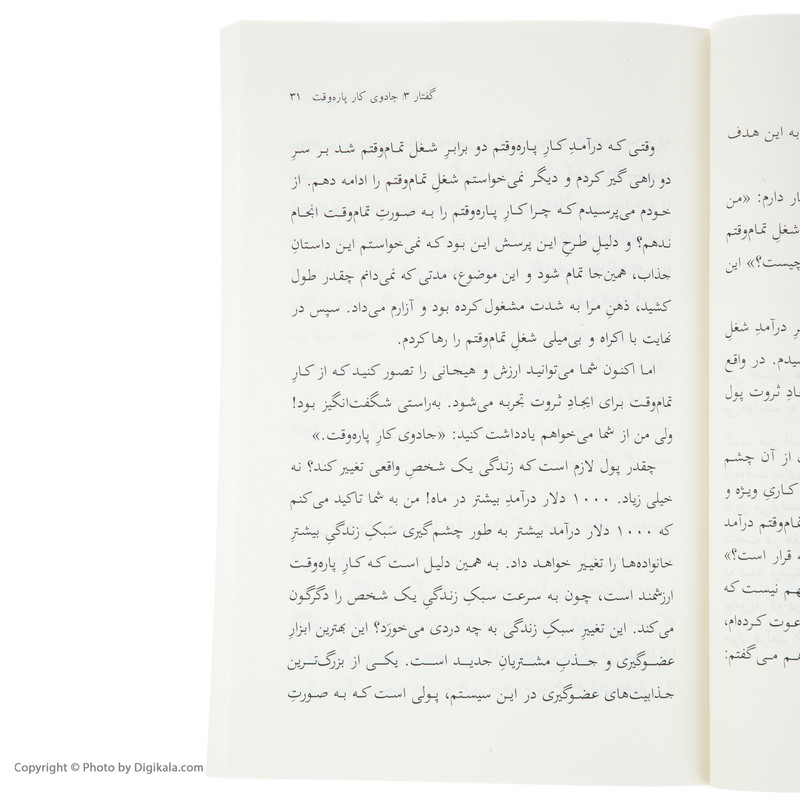 گفتار ۳: جادوی کار پاره‌وقت ۳۱
وقتی که درآمدِ کارِ پاره‌وقتم دو برابرِ شغل تمام‌وقتم شد بر سرِ
دو راهی گیر کردم و دیگر نمی‌خواستم شغلِ تمام‌وقتم را ادامه دهم. از
خودم می‌پرسیدم که چرا کارِ پاره‌وقتم را به صورتِ تمام‌وقت انجام
ندهم؟ و دلیلِ طرحِ این پرسش این بود که نمی‌خواستم این داستانِ
جذاب، همین‌جا تمام شود و این موضوع، مدتی که نمی‌دانم چقدر طول
کشید، ذهنِ مرا به شدت مشغول کرده بود و آزارم می‌داد. سپس در
نهایت با اکراه و بی‌میلی شغلِ تمام‌وقتم را رها کردم.
اما اکنون شما می‌توانید ارزش و هیجانی را تصور کنید که از کارِ
تمام‌وقت برای ایجادِ ثروت تجربه می‌شود. به‌راستی شگفت‌انگیز بود!
ولی من از شما می‌خواهم یادداشت کنید: «جادوی کارِ پاره‌وقت.»
چقدر پول لازم است که زندگی یک شخصِ واقعی تغییر کند؟ نه
خیلی زیاد. ۱۰۰۰ دلار درآمدِ بیشتر در ماه! من به شما تاکید می‌کنم
که ۱۰۰۰ دلار درآمد بیشتر به طور چشم‌گیری سَبکِ زندگیِ بیشترِ
خانواده‌ها را تغییر خواهد داد. به همین دلیل است که کارِ پاره‌وقت
ارزشمند است، چون به سرعت سبکِ زندگیِ یک شخص را دگرگون
می‌کند. این تغییرِ سبکِ زندگی به چه دردی می‌خورَد؟ این بهترین ابزارِ
عضوگیری و جذبِ مشتریانِ جدید است. یکی از بزرگ‌ترین
جذابیت‌های عضوگیری در این سیستم، پولی است که به صورتِ
به این هدف
ار دارم: «من
شغلِ تمام‌وقتم
چیست؟» این
رِ درآمدِ شغلِ
سیدم. در واقع
ادِ ثروت پول
از آن چشم
کاریِ ویژه و
تمام‌وقتم درآمد
ه قرار است؟»
هم نیست که
عوت کرده‌ام،
هم می‌گفتم:
Copyright © Photo by Digikala.com